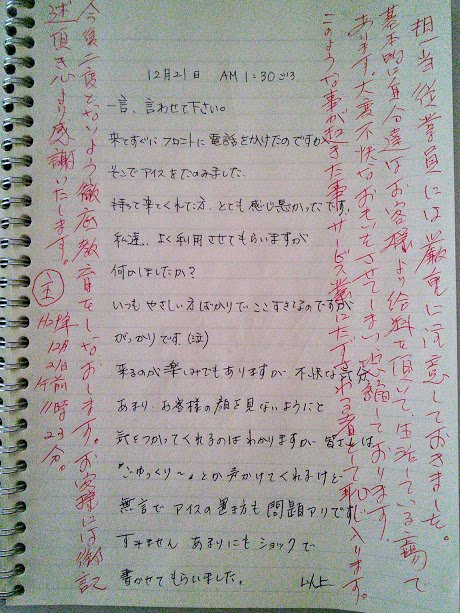 12月21日 AM1:30ごろ
一言、言わせて下さい。
来てすぐにフロントに電話をかけたのですが、
そこでアイスをたのみました。
持って来てくれた方、とても感じ悪かったです。
私達、よく利用させてもらいますが
何かしましたか?
いつもやさしい方ばかりでここすきなのですが
がっかりです(泣)
来るのが楽しみでもありますが 不快な気分
あまりお客様の顔を見ないようにと
気をつかってくれるのはわかりますが 皆さんは
"ごゆっくり〜"とか声かけてくれるけど
無言でアイスの置き方も問題アリです
すみません あまりにもショックで
書かせてもらいました。 以上
担当従業員には厳重に注意しておきました。
基本的に自分達はお客様より給料を頂いて生活している立場で
あります。大変不快なおもいをさせてしまい恐縮しております。
このような事が起きた事、サービス業にたずさわる者として恥じ入ります。
今後二度とないよう徹底教育をしなおします。お客様には御記
述頂き心より感謝いたします。
12月
21日
午前
11時
23分。